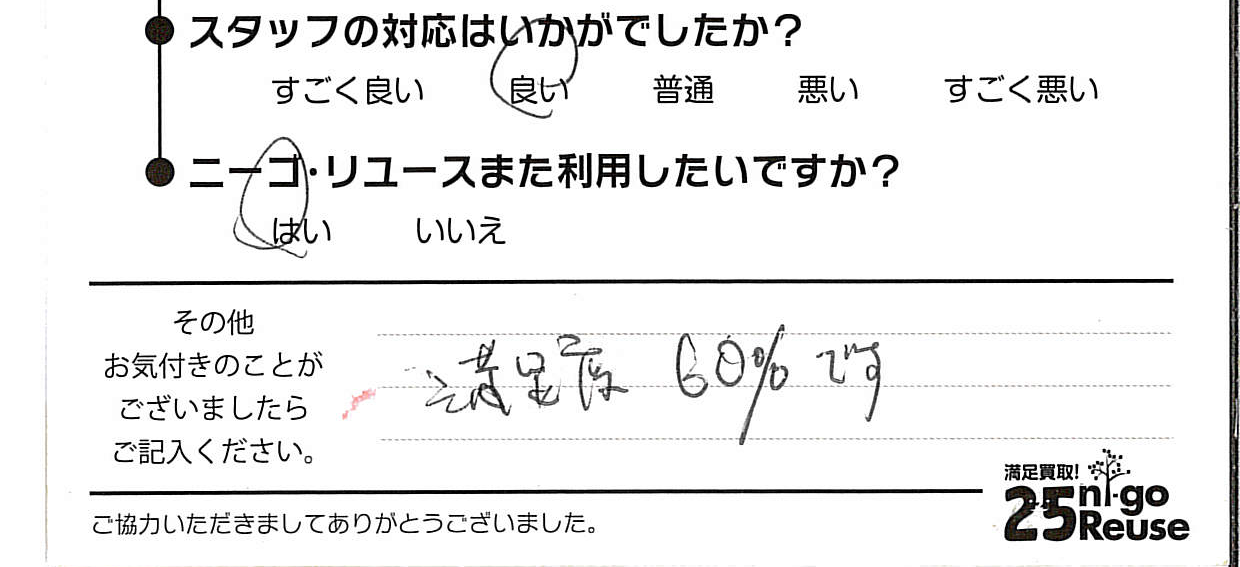 スタッフの対応はいかがでしたか？
すごく良い 良い 普通 悪い すごく悪い
ニーゴ・リユースまた利用したいですか？
はい いいえ
その他
お気付きのことが
ございましたら
ご記入ください。
満足度 60%です
ご協力いただきましてありがとうございました。
満足買取!
25 ni-go
Reuse